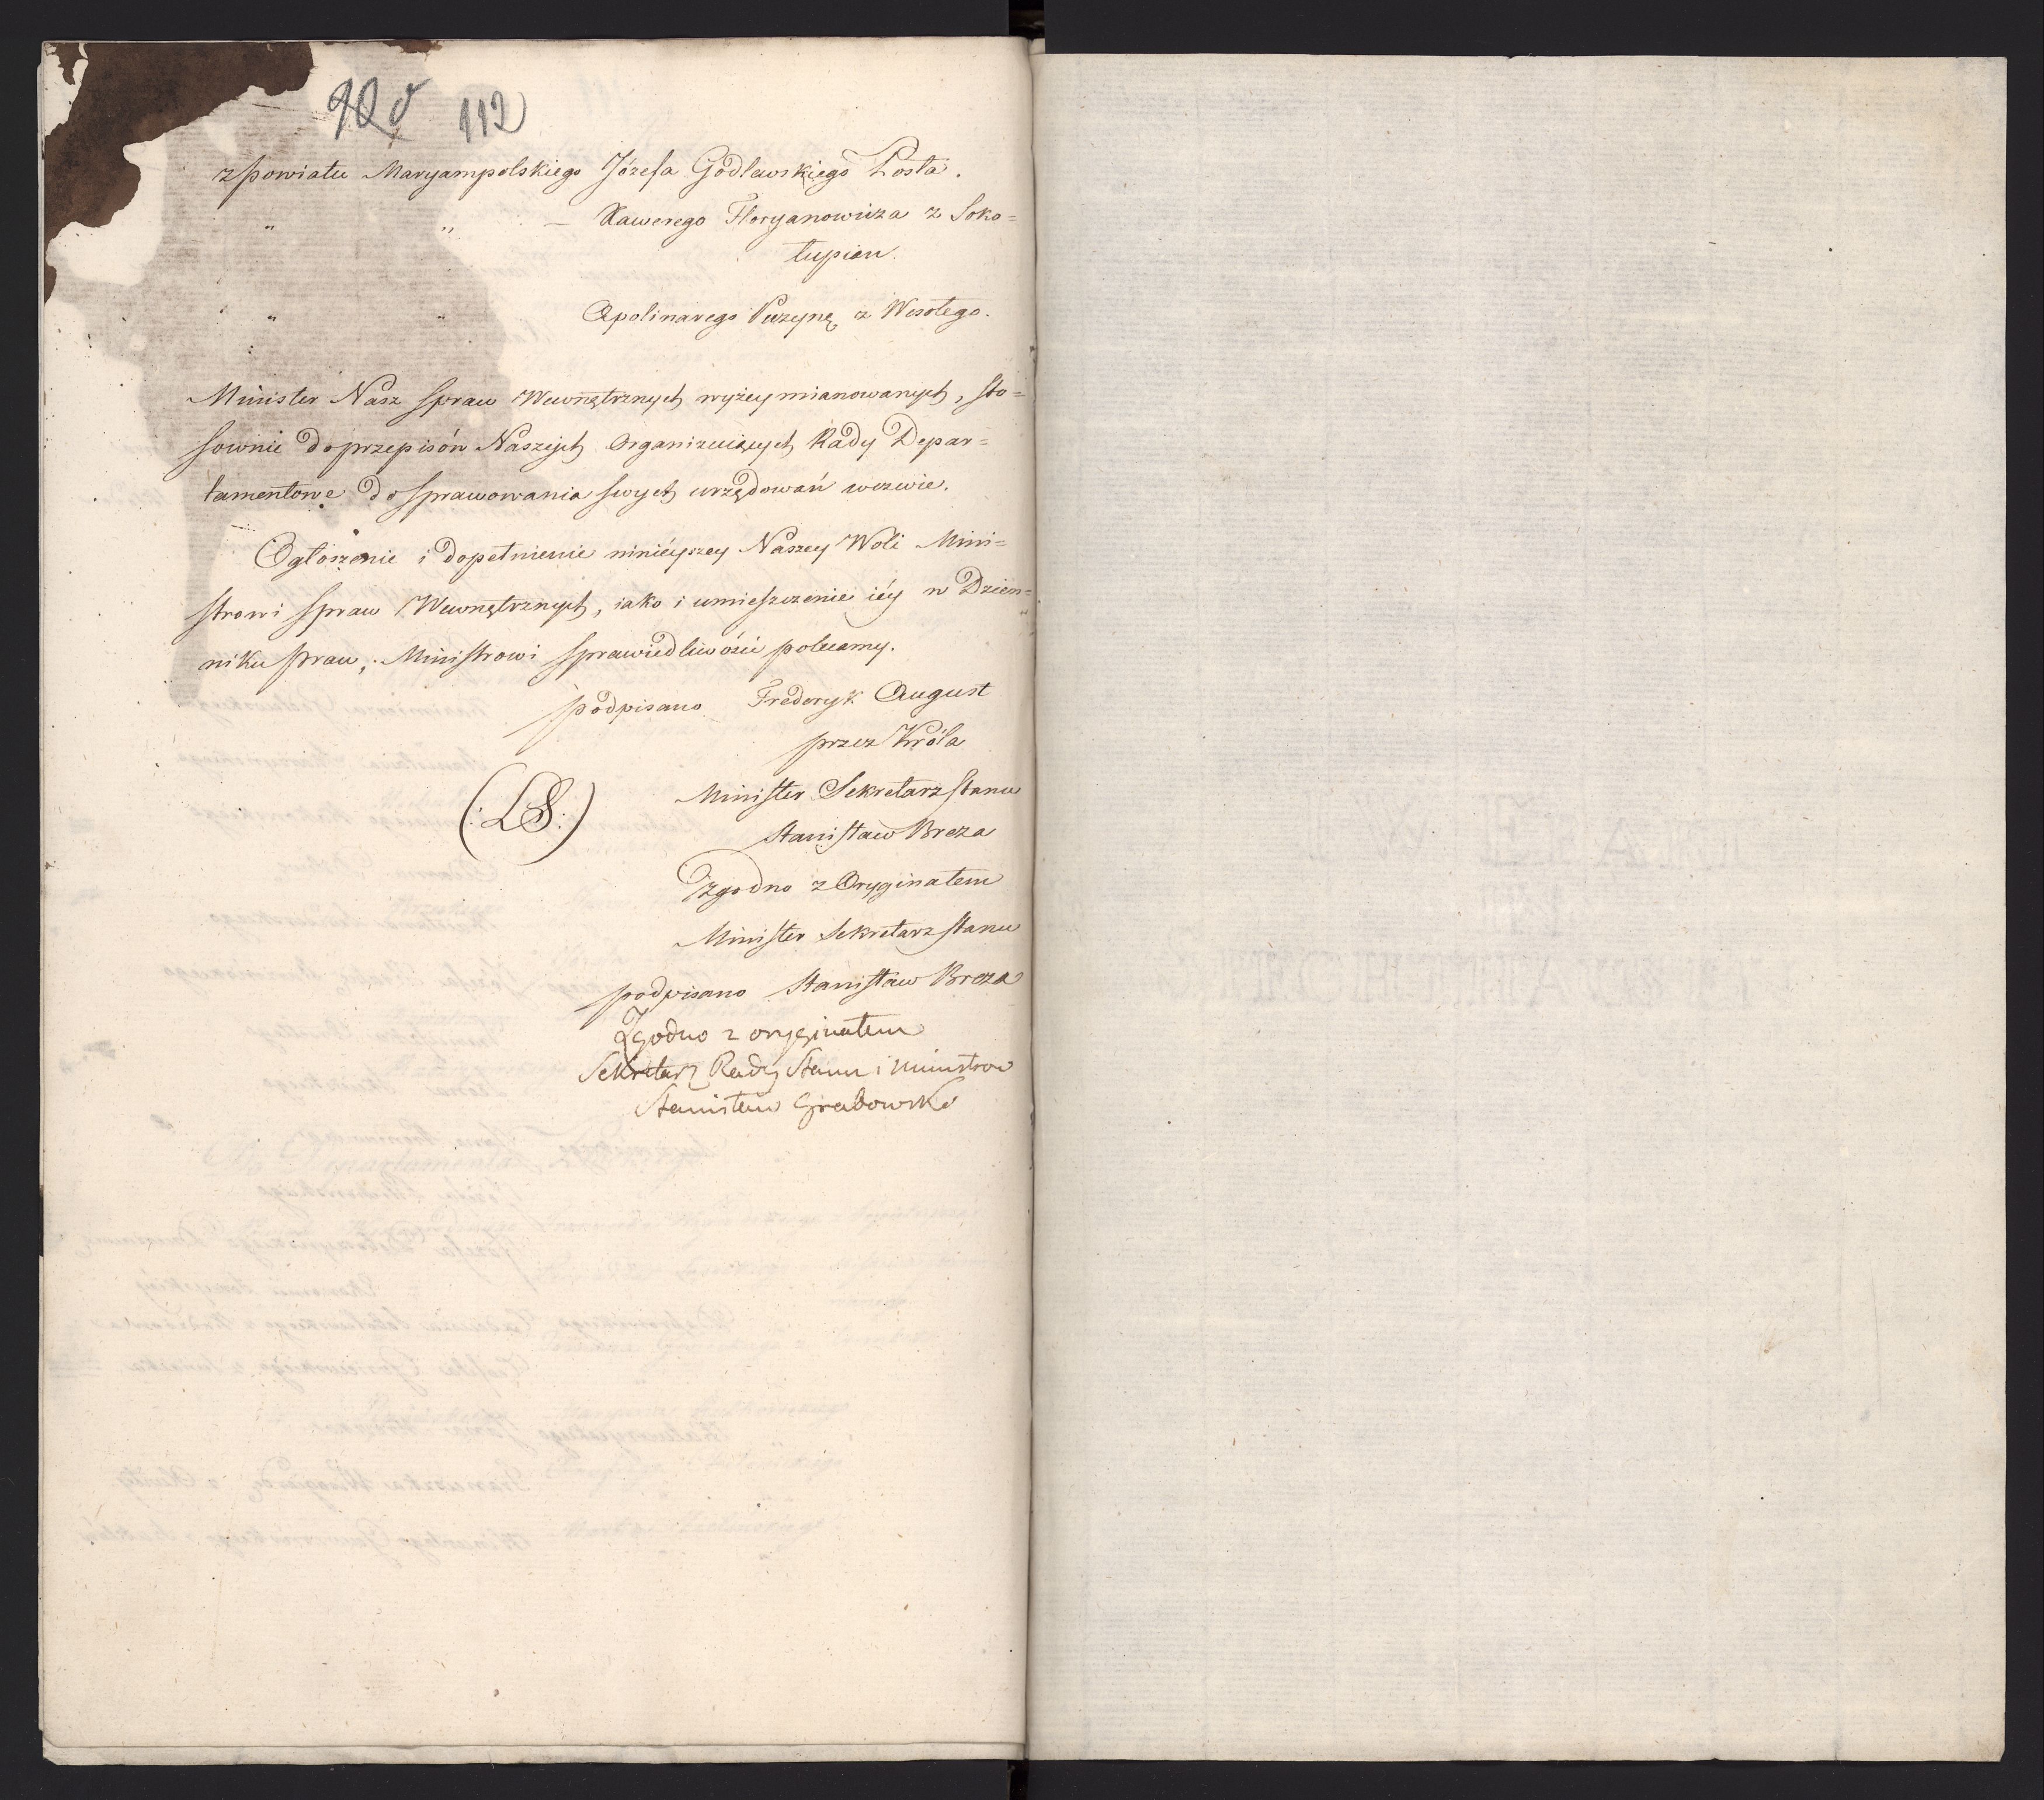 112
z Powiatu Maryampolskiego Józefa Godlewskiego Posła.
" " — Xawerego Floryanowicza z Soko=
łupian
" " Apolinarego Puzynę z Wesołego.
"
Minister Nasz Spraw Wewnętrznych wyżey mianowanych, sto=
sownie do przepisów Naszych Organizuiących Rady Depar=
tamentowe do sprawowania swych urzędowań wezwie.
Ogłoszenie i dopełnienie ninieyszey Naszey Woli Mini=
strowi Spraw Wewnętrznych, iako i umieszczenie iéy w Dzien=
niku praw, Ministrowi Sprawiedliwości polecamy.
podpisano Frederyk August
przez Króla
(:LS:) Minister Sekretarz Stanu
Stanisław Breza
Zgodno z Oryginałem
Minister Sekretarz Stanu
podpisano Stanisław Breza
Zgodno z oryginałem
Sekretarz Rady Stanu i Ministrow
Stanisław Grabowski